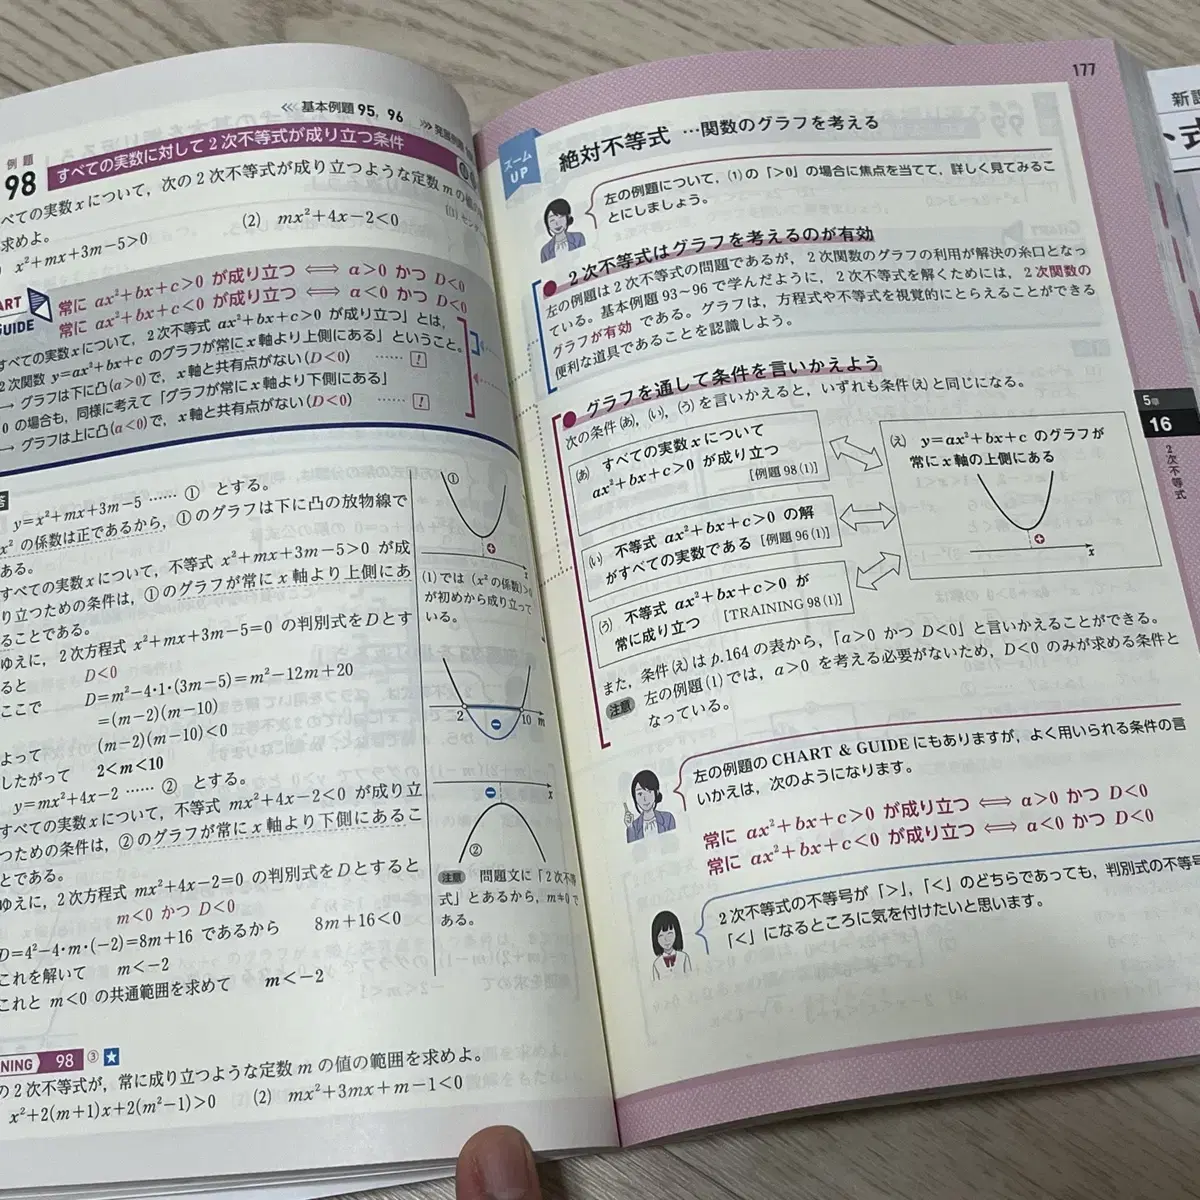 基本例題 95，96
例題
98
すべての実数に対して2次不等式が成り立つ条件
べての実数 x について，次の2次不等式が成り立つような定数 m の
求めよ。
x²+mx+3m−5>0
(2) mx²+4x−2<0
GUIDE
常に ax²+bx+c>0 が成り立つ ⟺ a>0 かつ D<0
常に ax²+bx+c<0 が成り立つ ⟺ a<0 かつ D<0
すべての実数 x について，2次不等式 ax²+bx+c>0 が成り立つ」とは，
2次関数 y=ax²+bx+c のグラフが常に x 軸より上側にある」ということ。
→ グラフは下に凸(a>0)で，x 軸と共有点がない(D<0) …… !
0 の場合も，同様に考えて「グラフが常に x 軸より下側にある」
→ グラフは上に凸(a<0)で，x 軸と共有点がない(D<0) …… !
y=x²+mx+3m−5 …… ① とする。
x² の係数は正であるから，①のグラフは下に凸の放物線で
ある。
すべての実数 x について，不等式 x²+mx+3m−5>0 が成
り立つための条件は，①のグラフが常に x 軸より上側にあ
ることである。
ゆえに，2次方程式 x²+mx+3m−5=0 の判別式を D とす
ると D<0
ここで D=m²−4・1・(3m−5)=m²−12m+20
=(m−2)(m−10)
よって (m−2)(m−10)<0
したがって 2<m<10
y=mx²+4x−2 …… ② とする。
すべての実数 x について，不等式 mx²+4x−2<0 が成り立
つための条件は，②のグラフが常に x 軸より下側にあるこ
とである。
ゆえに，2次方程式 mx²+4x−2=0 の判別式を D とすると
m<0 かつ D<0
D=4²−4・m・(−2)=8m+16 であるから 8m+16<0
これを解いて m<−2
これと m<0 の共通範囲を求めて m<−2
①
+
x
(1)では(x² の係数)>0
が初めから成り立って
いる。
2 − 10 m
−
x
②
注意 問題文に「2次不等
式」とあるから，m≠0 で
ある。
NING 98 ③
の2次不等式が，常に成り立つような定数 m の値の範囲を求めよ。
x²+2(m+1)x+2(m²−1)>0 (2) mx²+3mx+m−1<0
177
ズーム
UP
絶対不等式 …関数のグラフを考える
左の例題について，(1)の「>0」の場合に焦点を当てて，詳しく見てみるこ
とにしましょう。
● 2次不等式はグラフを考えるのが有効
左の例題は2次不等式の問題であるが，2次関数のグラフの利用が解決の糸口となっ
ている。基本例題93〜96で学んだように，2次不等式を解くためには，2次関数の
グラフが有効 である。グラフは，方程式や不等式を視覚的にとらえることができる
便利な道具であることを認識しよう。
● グラフを通して条件を言いかえよう
次の条件(あ)，(い)，(う)を言いかえると，いずれも条件(え)と同じになる。
(あ) すべての実数 x について
ax²+bx+c>0 が成り立つ
［例題 98(1)］
(い) 不等式 ax²+bx+c>0 の解
がすべての実数である ［例題 96(1)］
(う) 不等式 ax²+bx+c>0 が
常に成り立つ ［TRAINING 98(1)］
(え) y=ax²+bx+c のグラフが
常に x 軸の上側にある
+
x
また，条件(え)は p.164 の表から，「a>0 かつ D<0」と言いかえることができる。
注意 左の例題(1)では，a>0 を考える必要がないため，D<0 のみが求める条件と
なっている。
左の例題の CHART & GUIDE にもありますが，よく用いられる条件の言
いかえは，次のようになります。
常に ax²+bx+c>0 が成り立つ ⟺ a>0 かつ D<0
常に ax²+bx+c<0 が成り立つ ⟺ a<0 かつ D<0
2次不等式の不等号が「>」，「<」のどちらであっても，判別式の不等号
「<」になるところに気を付けたいと思います。
5章
16
2次不等式
新課